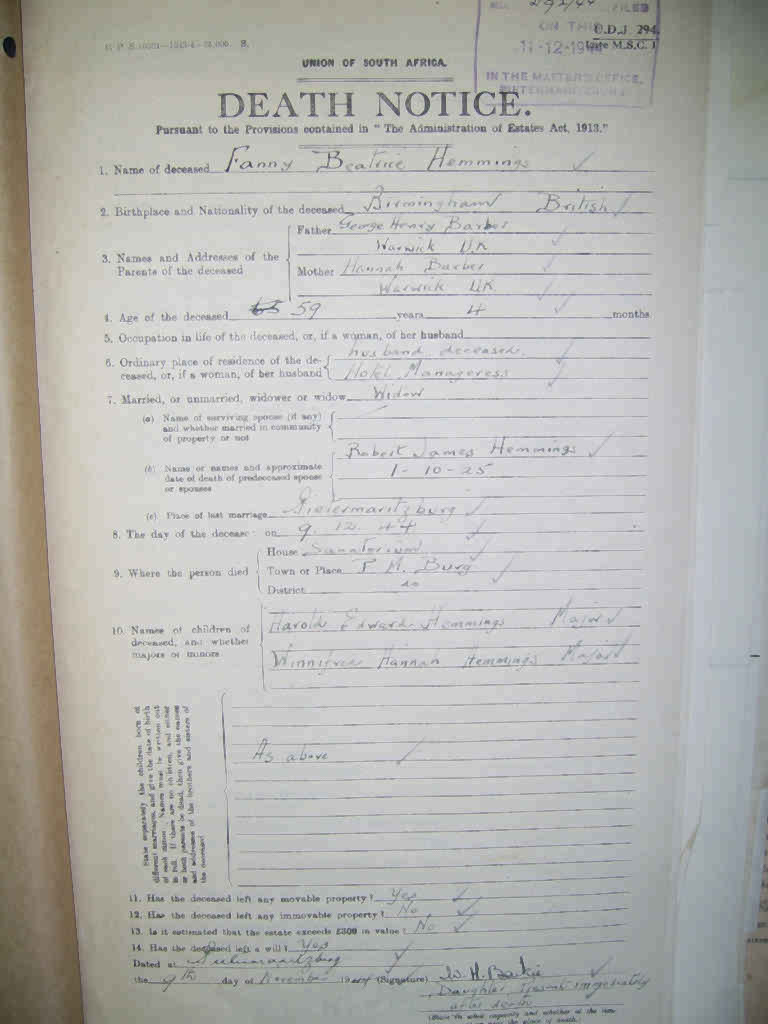 292/44
FILED
ON THIS
11-12-1944
IN THE MASTER'S OFFICE,
U.D.J. 294.
(Late M.S.C. 1
S.
UNION OF SOUTH AFRICA.
DEATH NOTICE.
Pursuant to the Provisions contained in "The Administration of Estates Act, 1913."
1. Name of deceased Fanny Beatrice Hemmings
2. Birthplace and Nationality of the deceased Birmingham British
3. Names and Addresses of the Parents of the deceased
Father George Henry Barber
Warwick U.K
Mother Hannah Barber
Warwick U.K.
4. Age of the deceased 59 years 4 months
5. Occupation in life of the deceased, or, if a woman, of her husband
husband deceased.
6. Ordinary place of residence of the de-
ceased, or, if a woman, of her husband
Hotel Manageress
7. Married, or unmarried, widower or widow Widow
(a) Name of surviving spouse (if any)
and whether married in community
of property or not
Robert James Hemmings
1-10-25
(b) Name or names and approximate
date of death of predeceased spouse
or spouses
(c) Place of last marriage Pietermaritzburg
8. The day of the decease on 9. 12. 44
9. Where the person died
House Sanatorium
Town or Place P.M. Burg
District do
10. Names of children of
deceased, and whether
majors or minors
Harold Edward Hemmings Major
Winnifred Hannah Hemmings Major
State separately the children born of
different marriages, and give the date of birth
of each minor. Names must be written out
in full. If there are no children, and either
or both parents be dead, then give the names
and addresses of the brothers and sisters of
the deceased
As above
11. Has the deceased left any movable property? Yes
12. Has the deceased left any immovable property? No
13. Is it estimated that the estate exceeds £300 in value? No
14. Has the deceased left a will? Yes
Dated at Pietermaritzburg
the 9th day of November 1944 (Signature)
Daughter, Present immediately
after death